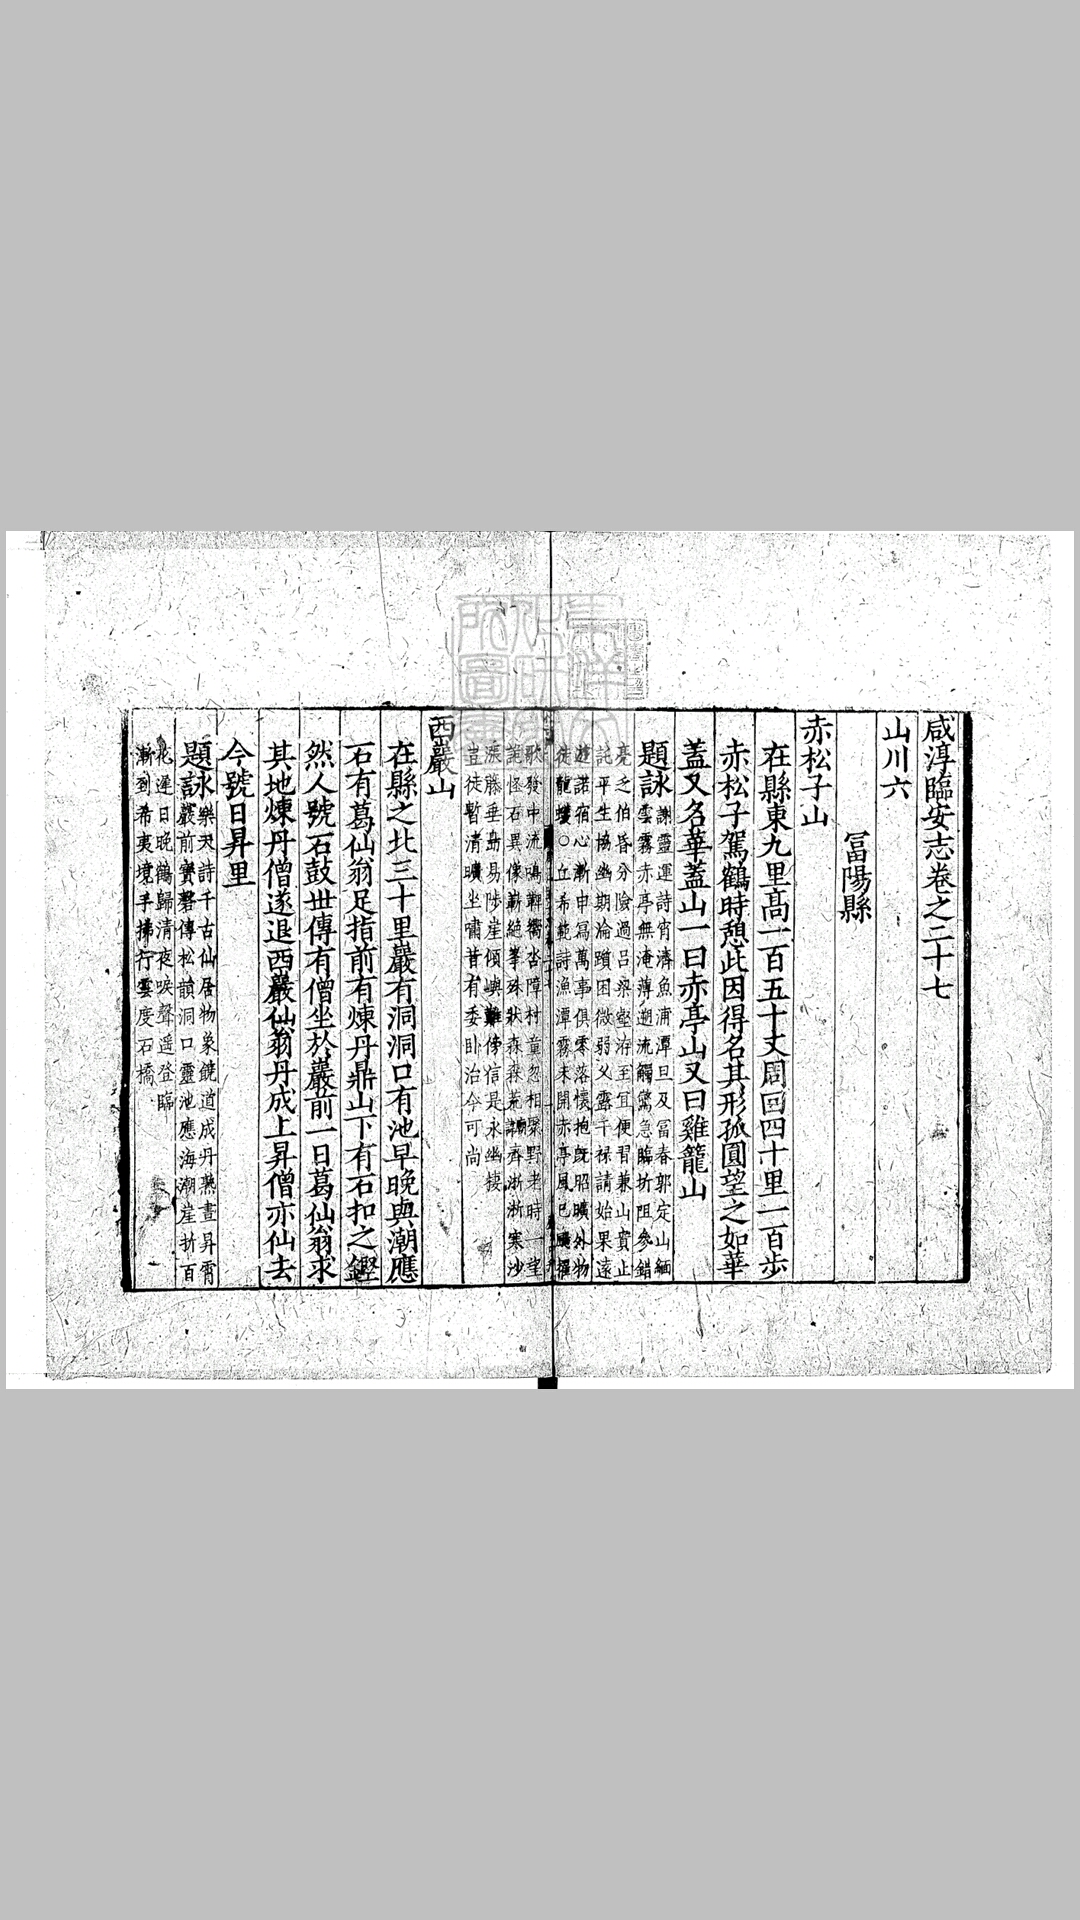 咸淳臨安志卷之二十七
山川六
冨陽縣
赤松子山
在縣東九里高一百五十丈周回四十里一百步
赤松子駕鶴時憩此因得名其形孤圓望之如華
蓋又名華蓋山一曰赤亭山又曰雞籠山
題詠謝靈運詩宵濟魚浦潭旦及冨春郭定山緬
雲霧赤亭無淹薄遡流觸驚急臨圻阻參錯
亮乏伯昏分險過呂梁壑洊至宜便習兼山貴止
託平生協幽期淪躓困微弱乆露干祿請始果遠
遊諾宿心漸申寫萬事俱零落懷抱旣昭曠外物
徒龍蠖○丘希範詩漁潭霧未開赤亭風已颺櫂
歌發中流鳴鞞響沓障村童忽相聚野老時一望
詭怪石異像嶄絕峯殊狀森森荒樹齊淅淅寒沙
漲藤垂島易陟崖傾嶼難傍信是永幽棲
豈徒暫清曠坐嘯昔有委卧治今可尚
西巖山
在縣之北三十里巖有洞洞口有池早晚與潮應
石有葛仙翁足指前有煉丹鼎山下有石扣之鏗
然人號石鼓世傳有僧坐於巖前一日葛仙翁求
其地煉丹僧遂退西巖仙翁丹成上昇僧亦仙去
今號日昇里
題詠樂天詩千古仙居物象饒道成丹𤎅晝昇霄
巖前寶磬傳松韻洞口靈池應海潮崖折百
花遲日晚鶴歸清夜唳聲遥登臨
漸到希夷境手拂行雲度石橋